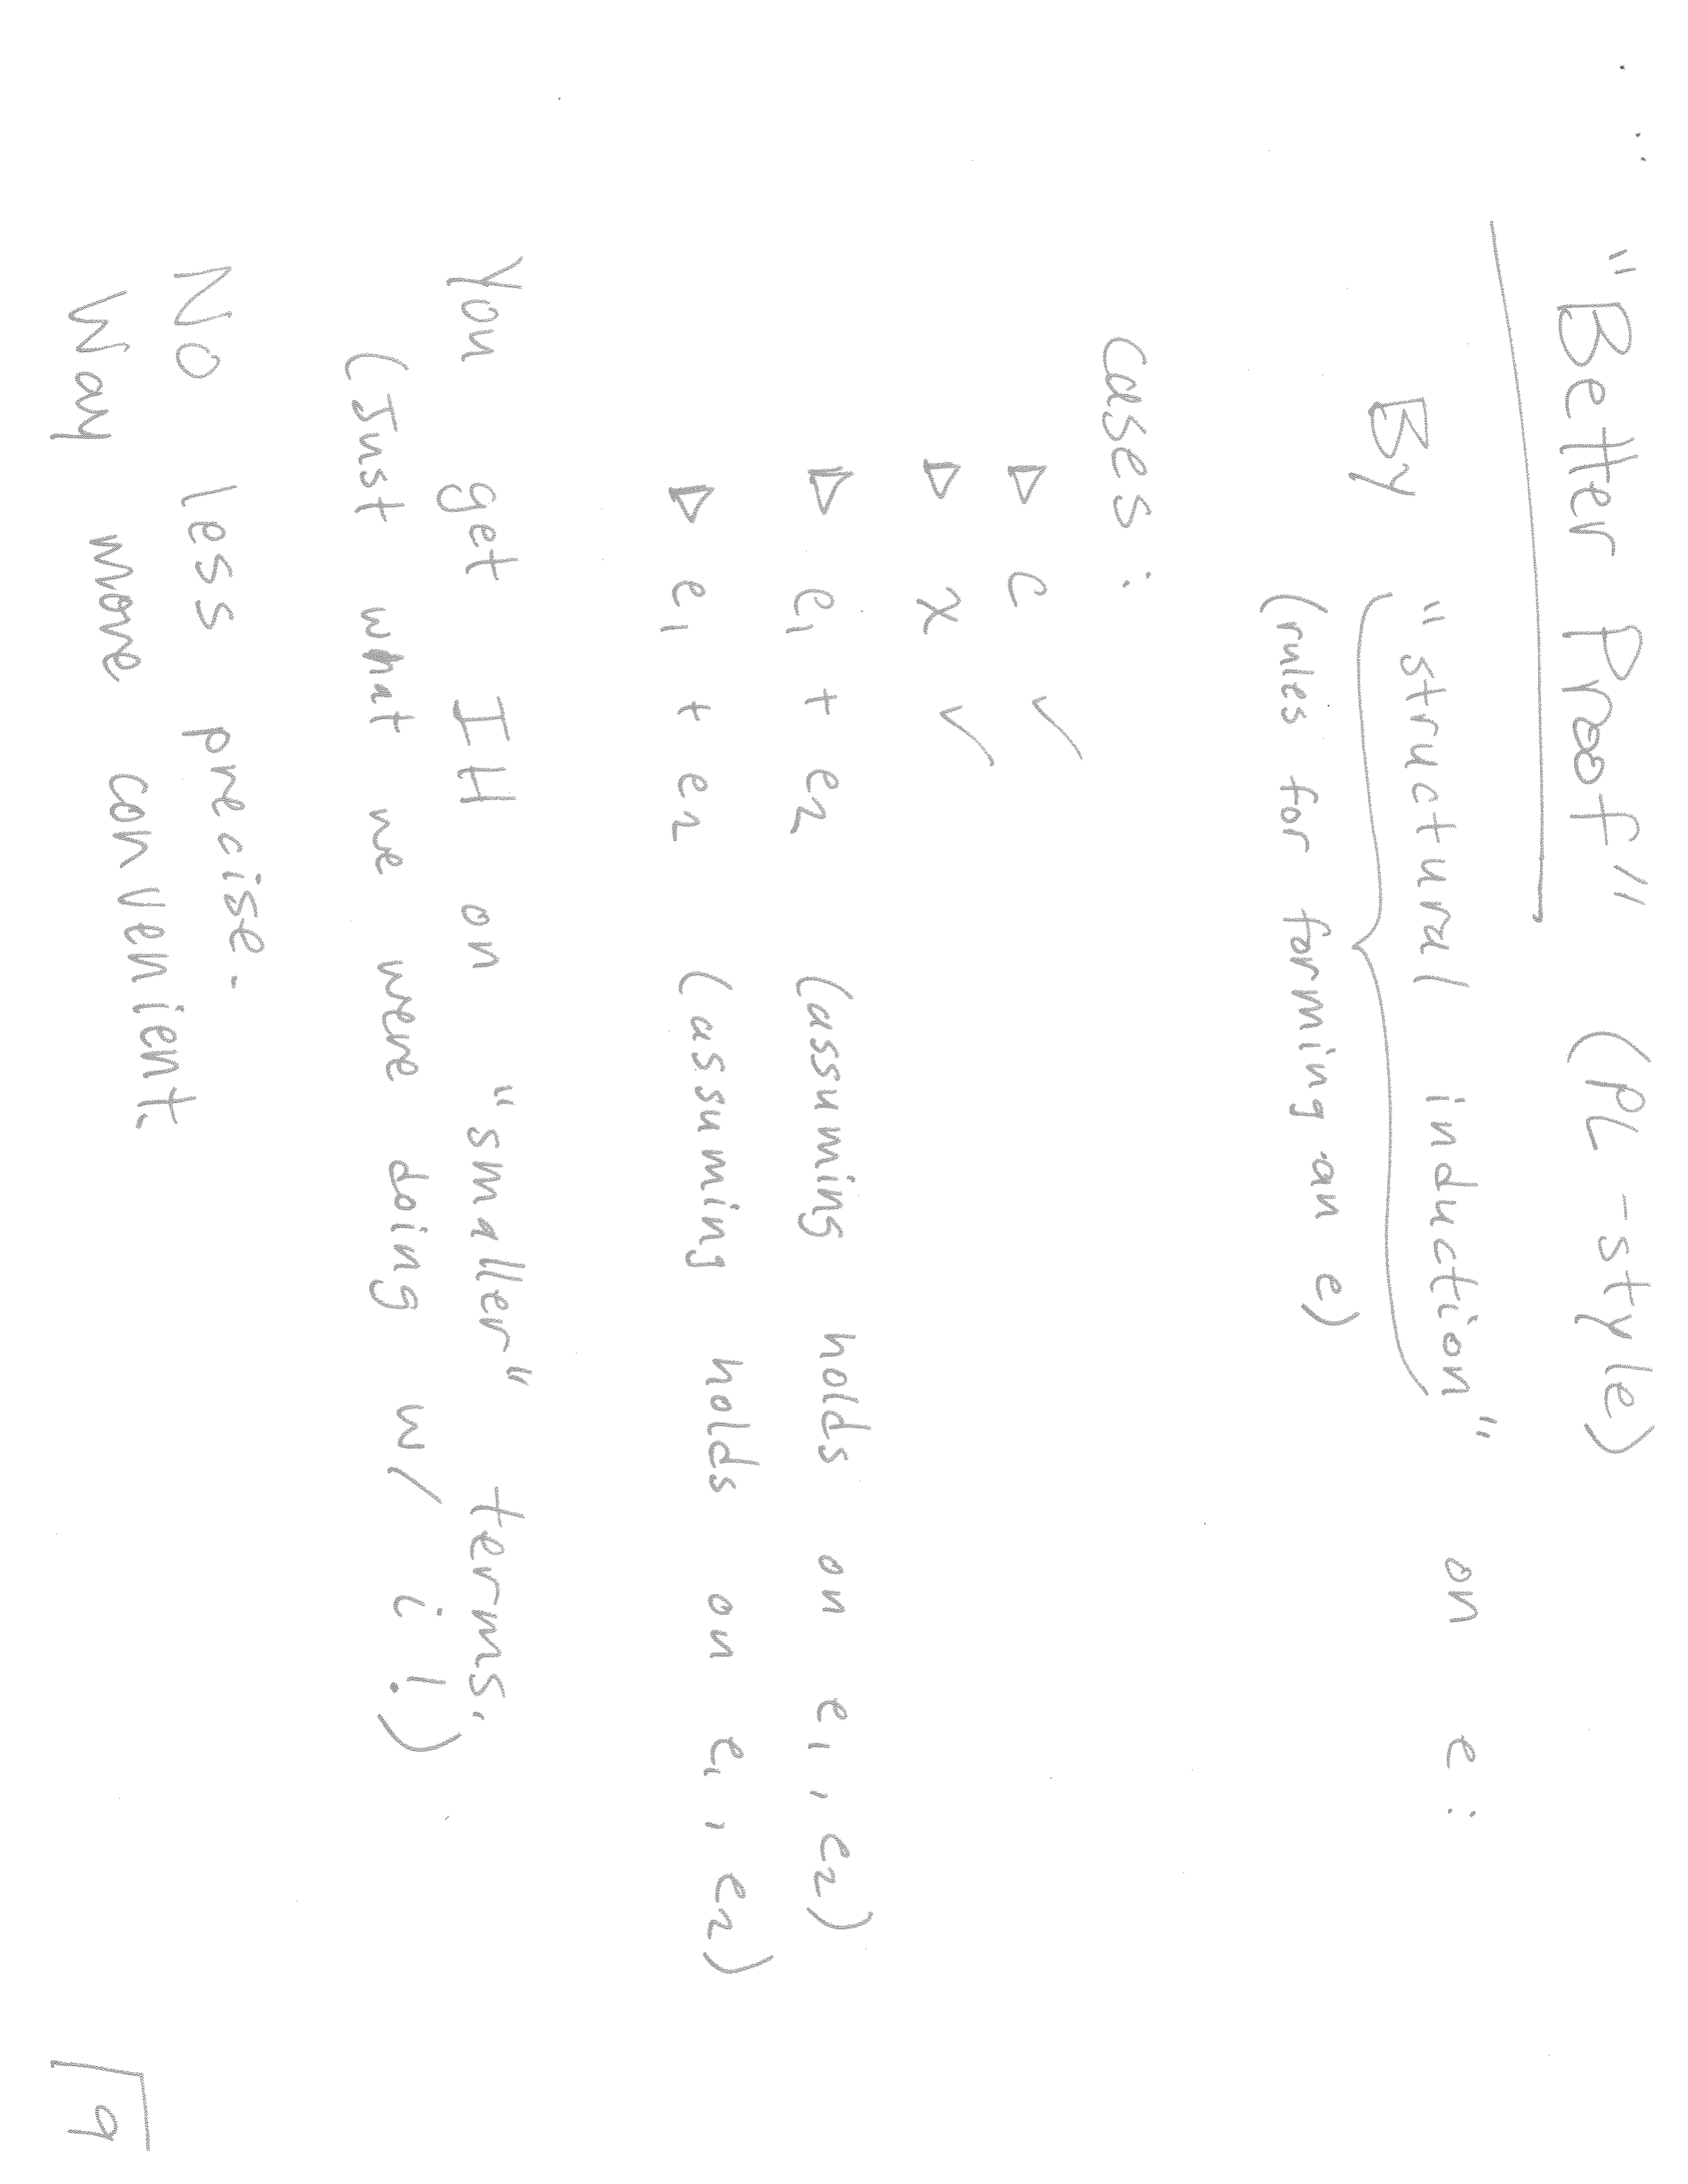 "Better Proof" (PL-style)
By "structural induction" on e:
(rules for forming an e)
Cases:
▷ c ✓
▷ x ✓
▷ e₁ + e₂ (assuming holds on e₁, e₂)
▷ e₁ + e₂ (assuming holds on e₁, e₂)
You get IH on "smaller" terms,
(Just what we were doing w/ i!)
No less precise.
Way more convenient.
9